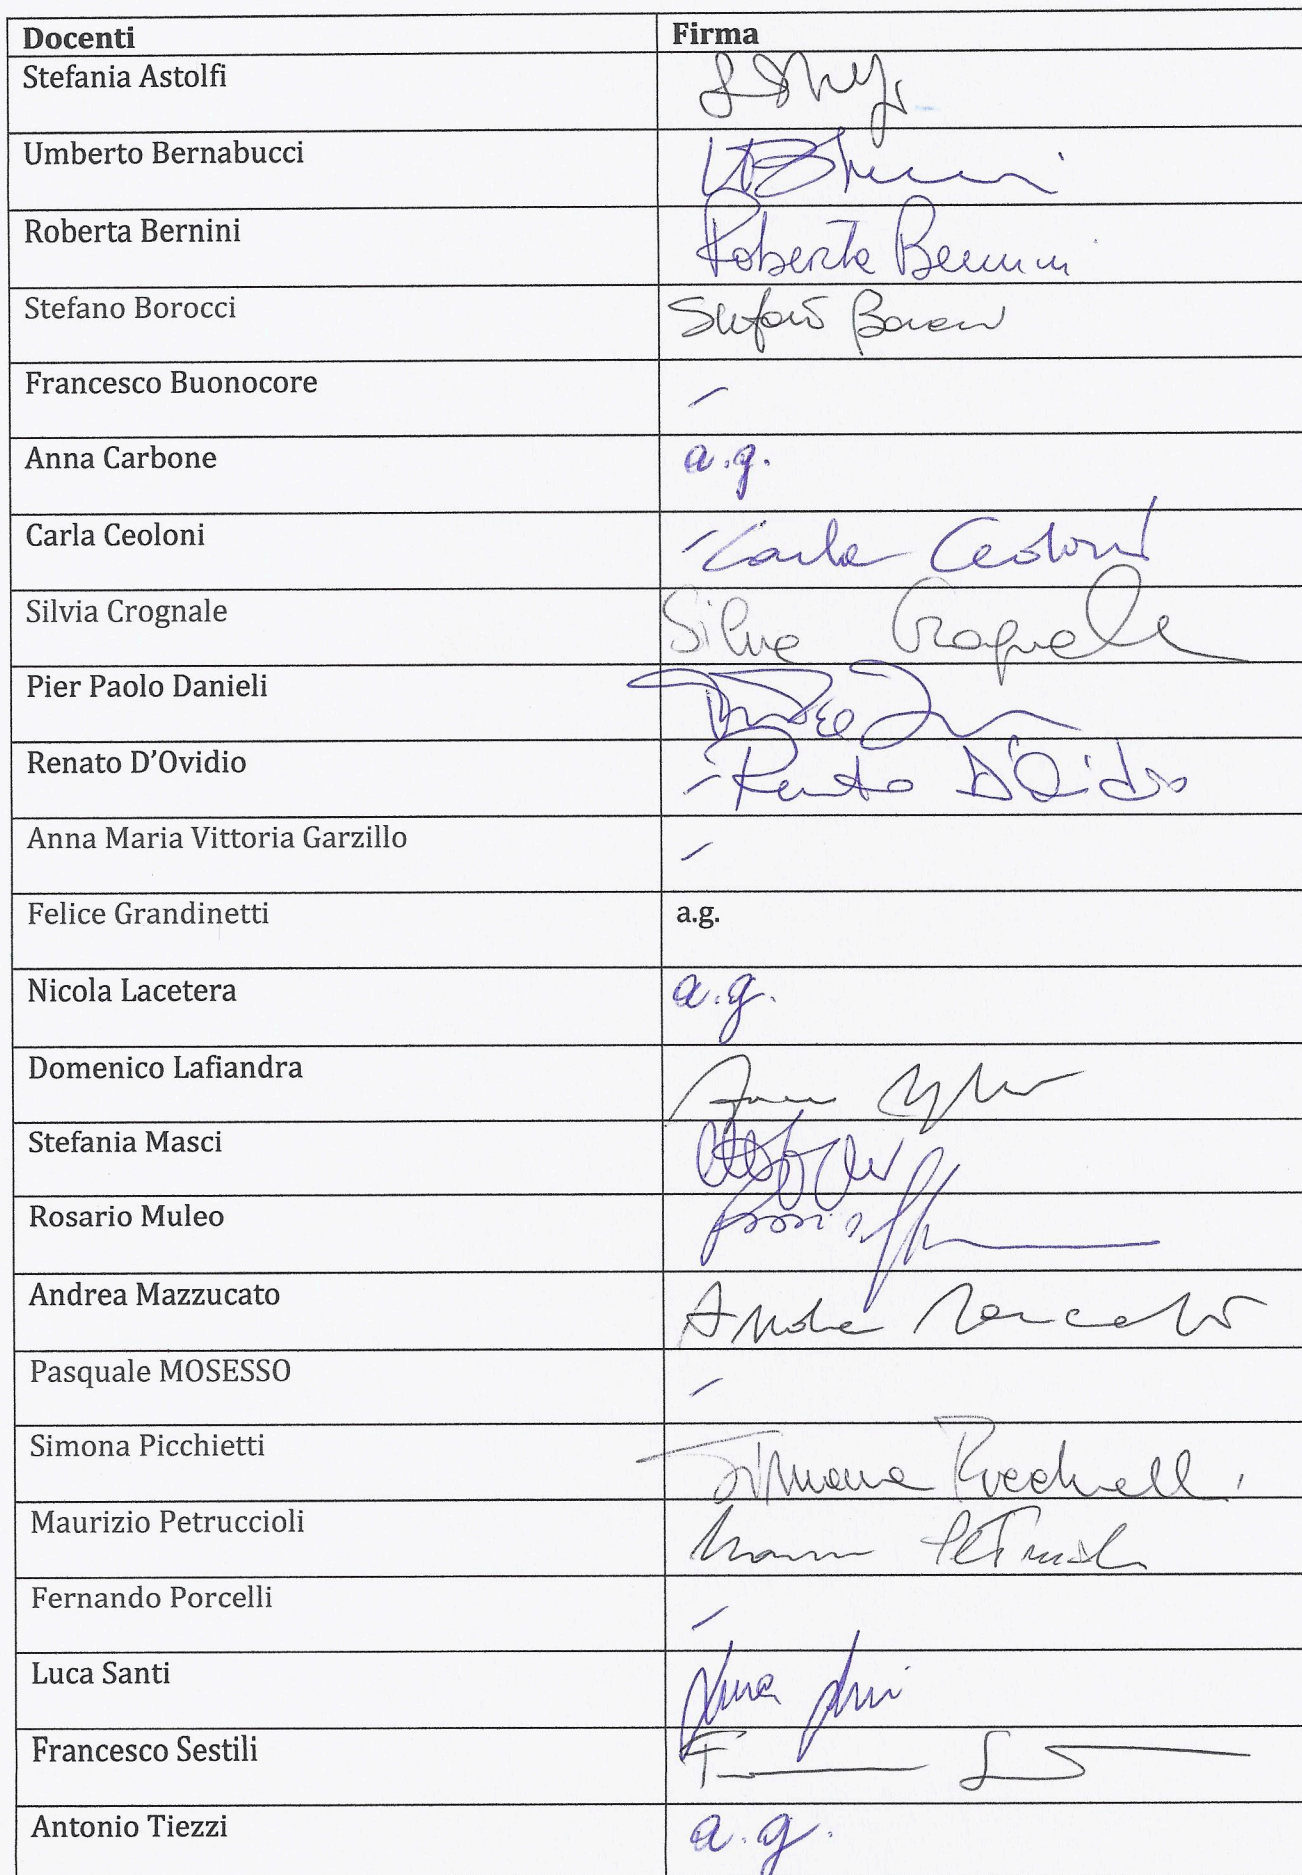 Docenti Firma
Stefania Astolfi
Umberto Bernabucci
Roberta Bernini Roberta Bernini
Stefano Borocci Stefano Borocci
Francesco Buonocore –
Anna Carbone a.g.
Carla Ceoloni – Carla Ceoloni
Silvia Crognale Silvia Crognale
Pier Paolo Danieli
Renato D’Ovidio – Renato D'Ovidio
Anna Maria Vittoria Garzillo –
Felice Grandinetti a.g.
Nicola Lacetera a.g.
Domenico Lafiandra
Stefania Masci
Rosario Muleo
Andrea Mazzucato Andrea Mazzucato
Pasquale MOSESSO –
Simona Picchietti Simona
Maurizio Petruccioli
Fernando Porcelli –
Luca Santi Luca Santi
Francesco Sestili
Antonio Tiezzi a.g.